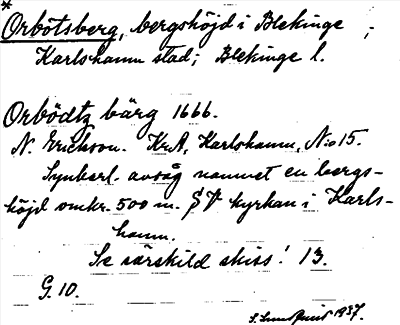 *
Orbötsberg, bergshöjd i Blekinge ;
Karlshamn stad; Blekinge l.
Orbödtz bärg 1666.
N. Erickson. Kr.A. Karlshamn, N:o 15.
Synberl. avsåg namnet en bergs-
höjd omkr. 500 m. SV kyrkan i Karls-
hamn.
Se särskild skiss! 13.
G. 10.
1937.